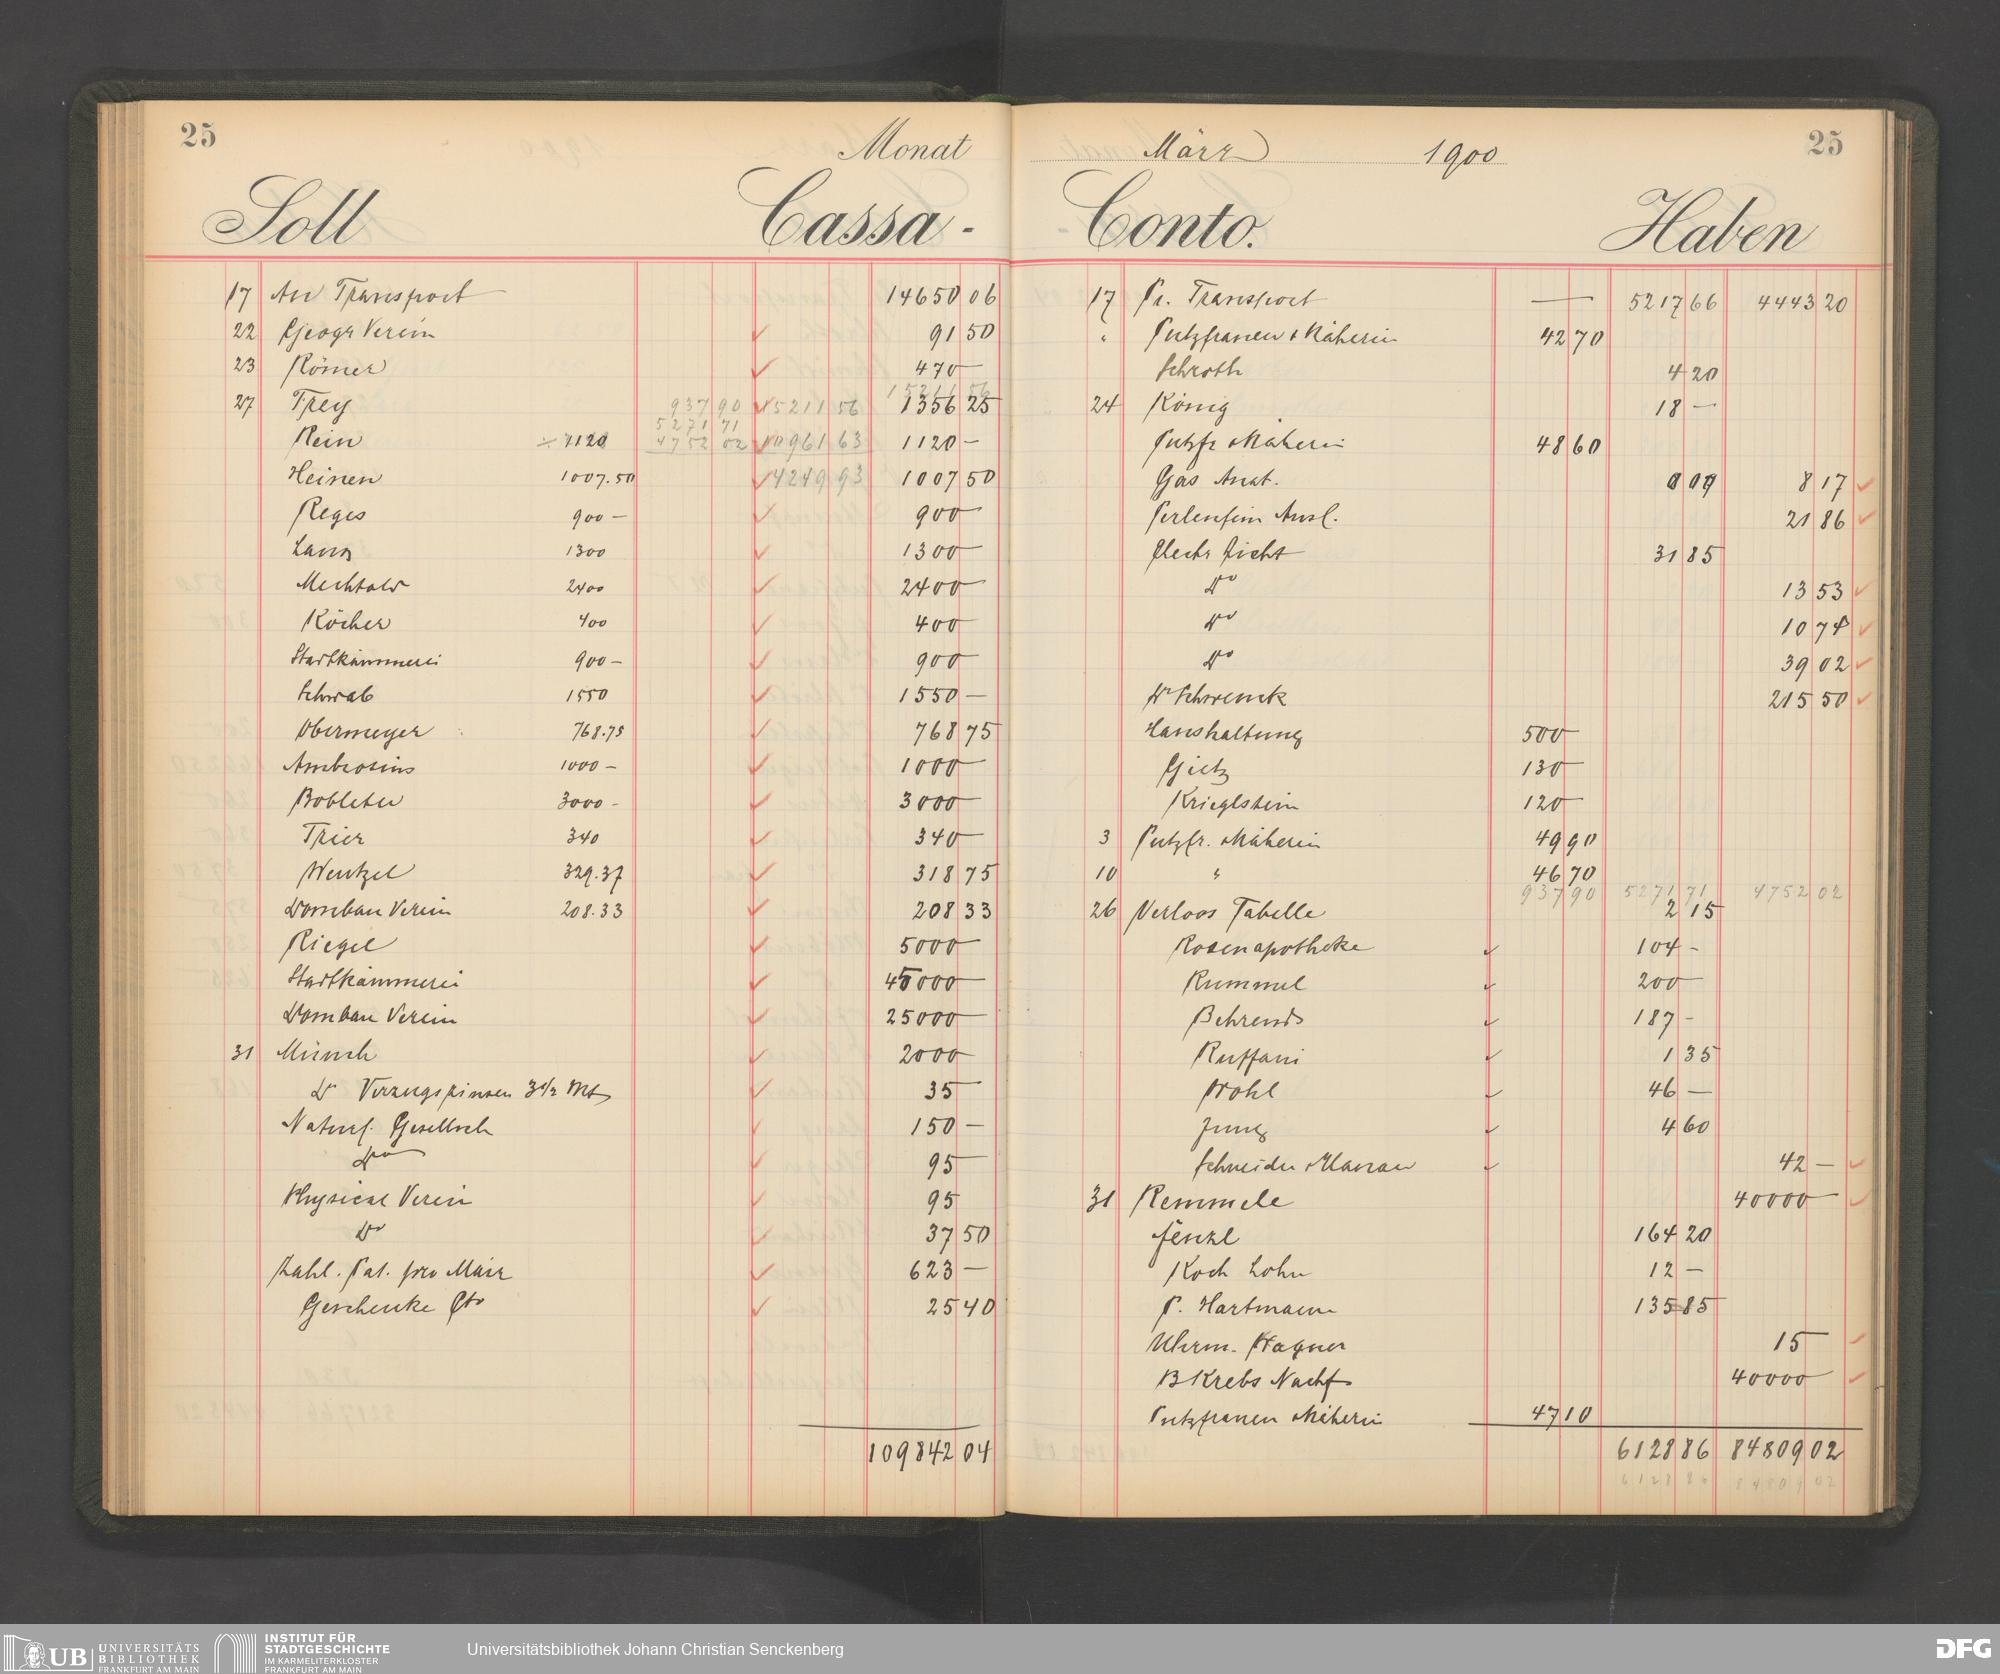 25
Monat März 1900
25
Soll Cassa- Conto. Haben
17 An Transport 14650 06
22 Geogr Verein 91 50
23 Römer 470 —
15211 56
27 Trey 937 90 15211 56 1356 25
5271 71
Rein 1120 4752 02 10961 63 1120 —
Heinen 1007.50 4249 93 1007 50
Reges 900 — 900 —
Lang 1300 1300 —
Mechtold 2400 2400 —
Köcher 400 400 —
Stadtkämmerei 900 — 900 —
Schwab 1550 1550 —
Obermeyer 768.75 768 75
Ambrosius 1000 — 1000 —
Bobleter 3000 - 3000 —
Trier 340 340 —
Wentzel 329.37 318 75
Dombau Verein 208.33 208 33
Riegel 5000 —
Stadtkämmerei 45000 —
Dombau Verein 25000 —
31 Münch 2000 —
do Verzugszinsen 3 1/2 Mt 35 —
Naturf. Gesellsch 150 —
do 95 —
Physical Verein 95
do 37 50
Zahl. Pat. pro März 623 —
Geschenke Cto 25 40
109842 04
17 Pr. Transport — 5217 66 4443 20
" Putzfrauen & Näherin 42 70
Schroth 4 20
24 König 18 —
Putzfr & Näherin 48 60
Gas Anat. 8 17
Perlenfein Ausl. 21 86
Electr Licht 31 85
do 13 53
do 10 74
do 39 02
Dr Schwenck 215 50
Haushaltung 500 —
Gietz 130 —
Krieglstein 120 —
3 Putzfr. & Näherin 49 90
10 " 46 70
937 90 5271 71 4752 02
26 Verloos Tabelle 2 15
Rosenapotheke 104 -
Rummel 200 —
Behrends 187 -
Ruffani 1 35
Wohl 46 —
Jung 4 60
Schneider & Hanau 42 —
31 Remmele 40000 —
Fenzl 164 20
Koch Lohn 12 —
P. Hartmann 135 85
Uhrm. Wagner 15 —
B Krebs Nachf 40000 —
Putzfrauen & Näherin 47 10
6128 86 84809 02
6128 86 84809 02
UB UNIVERSITÄTS
BIBLIOTHEK
FRANKFURT AM MAIN
INSTITUT FÜR
STADTGESCHICHTE
IM KARMELITERKLOSTER
FRANKFURT AM MAIN
Universitätsbibliothek Johann Christian Senckenberg
DFG